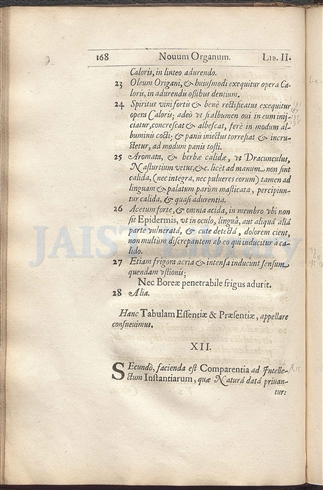 168 Nouum Organum. LIB. II.
Caloris, in linteo adurendo.
23 Oleum Origani, & huiusmodi exequitur opera Ca-
loris, in adurendis ossibus dentium.
24 Spiritus vini fortis & benè rectificatus exequitur
opera Caloris; adeò vt si albumen oui in eum inij-
ciatur, concrescat & albescat, ferè in modum al-
buminis cocti; & panis iniectus torrefiat & incru-
stetur, ad modum panis tosti.
25 Aromata, & herbæ calidæ, vt Dracunculus,
Nasturtium vetus, &c. licèt ad manum non sint
calida, (nec integra, nec pulueres eorum) tamen ad
linguam & palatum parùm masticata, percipiun-
tur calida, & quasi adurentia.
26 Acetum forte, & omnia acida, in membro vbi non
sit Epidermis, vt in oculo, linguâ, aut aliquâ aliâ
parte vulneratâ, & cute detectâ, dolorem cient,
non multùm discrepantem ab eo qui inducitur à ca-
lido.
27 Etiam frigora acria & intensa inducunt sensum
quendam vstionis;
Nec Boreæ penetrabile frigus adurit.
28 Alia.
Hanc Tabulam Essentiæ & Præsentiæ, appellare
consueuimus.
XII.
SEcundò, facienda est Comparentia ad Intelle-
ctum Instantiarum, quæ Naturâ datâ priuan-
tur:
JAIST Library